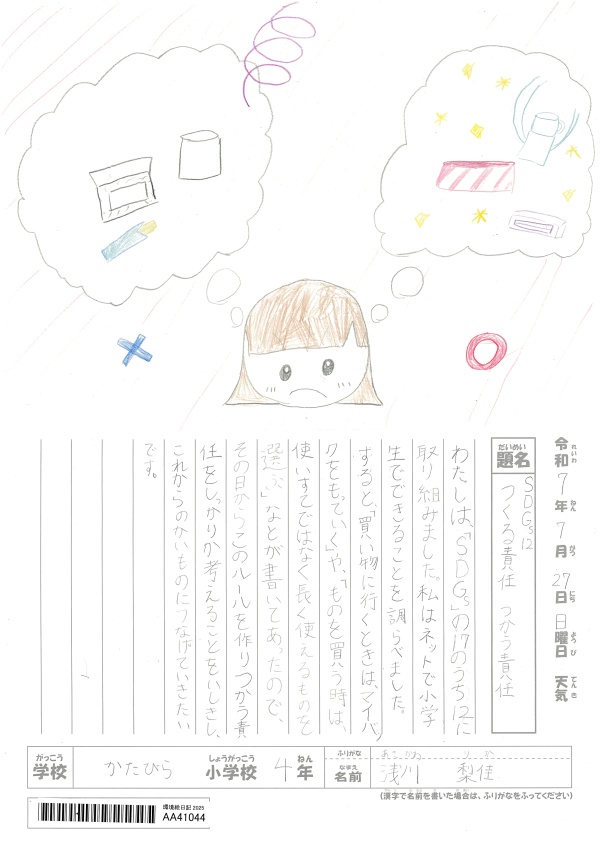 令和7年7月27日日曜日 天気
れいわ ねん がつ にち ようび てんき
だいめい
題名
SDGs12
つくる責任 つかう責任
わたしは、「SDGs」の17のうち12に
取り組みました。私はネットで小学
生でできることを調らべました。
すると、「買い物に行くときは、マイバッ
クをもっていく」や、「ものを買う時は、
使いすてではなく長く使えるものを
選ぶ」などが書いてあったので、
その日からこのルールを作りつかう責
任をしっかりか考えることをいしきし、
これからのかいものにつなげていきたい
です。
がっこう しょうがっこう ねん ふりがな
学校 かたびら 小学校 4年
なまえ
名前 浅川 梨佳
(漢字で名前を書いた場合は、ふりがなをふってください)
環境絵日記 2025
AA41044